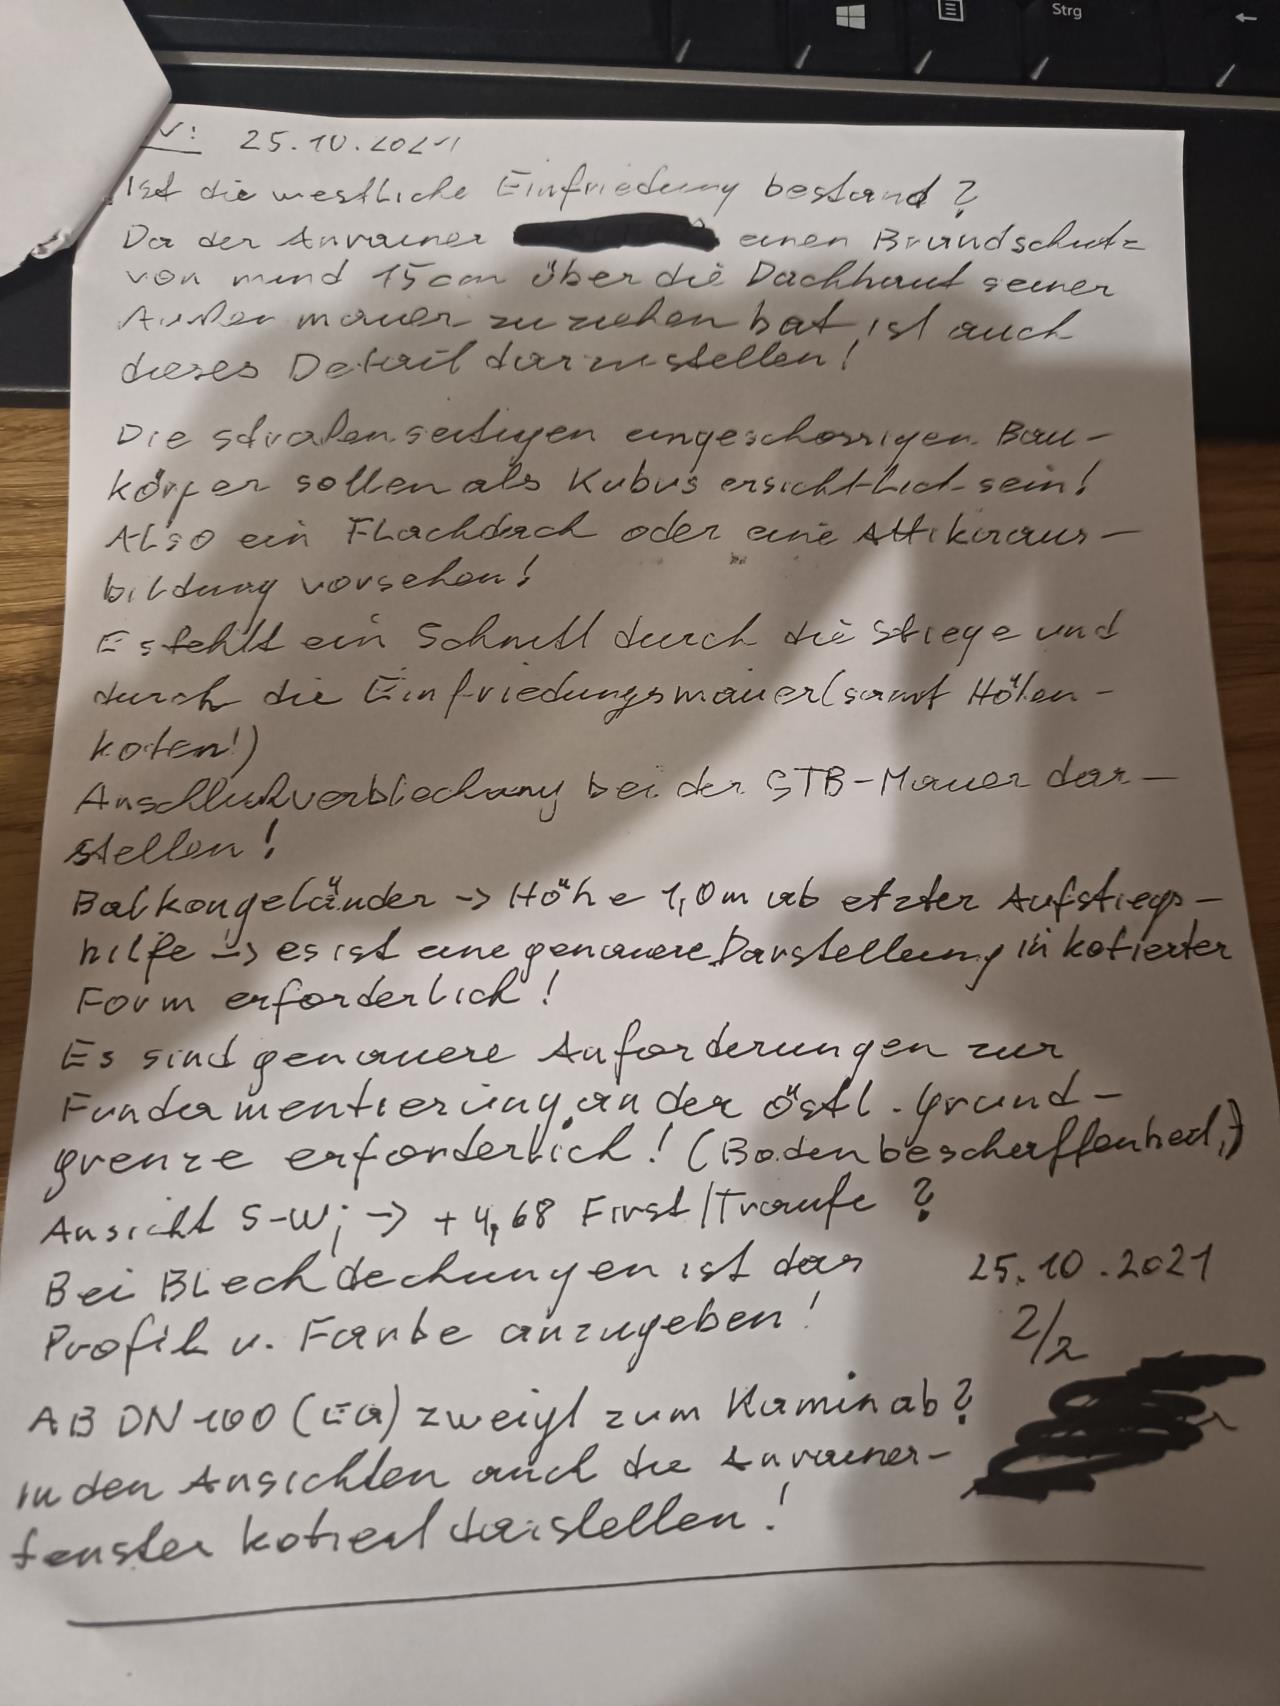 Strg
V: 25.10.2021
Ist die westliche Einfriedung bestand?
Da der Anrainer einen Brandschutz
von mind 15cm über die Dachhaut seiner
Außenmauer zu ziehen hat, ist auch
dieses Detail darzustellen!
Die straßenseitigen eingeschossigen Bau-
körper sollen als Kubus ersichtlich sein!
Also ein Flachdach oder eine Attikaaus-
bildung vorsehen!
Es fehlt ein Schnitt durch die Stiege und
durch die Einfriedungsmauer (samt Höhen-
koten!)
Anschlußverblechung bei der STB-Mauer dar-
stellen!
Balkongeländer -> Höhe 1,0m ab etzter Aufstiegs-
hilfe -> es ist eine genauere Darstellung in kotierter
Form erforderlich!
Es sind genauere Anforderungen zur
Fundamentierung an der östl. Grund-
grenze erforderlich! (Bodenbeschaffenheit,)
Ansicht S-W; -> +4,68 First/Traufe?
Bei Blechdeckungen ist das
Profil u. Farbe anzugeben!
25.10.2021
2/2
AB DN 100 (EG) zweigt zum Kamin ab?
in den Ansichten auch die Anrainer-
fenster kotiert darstellen!